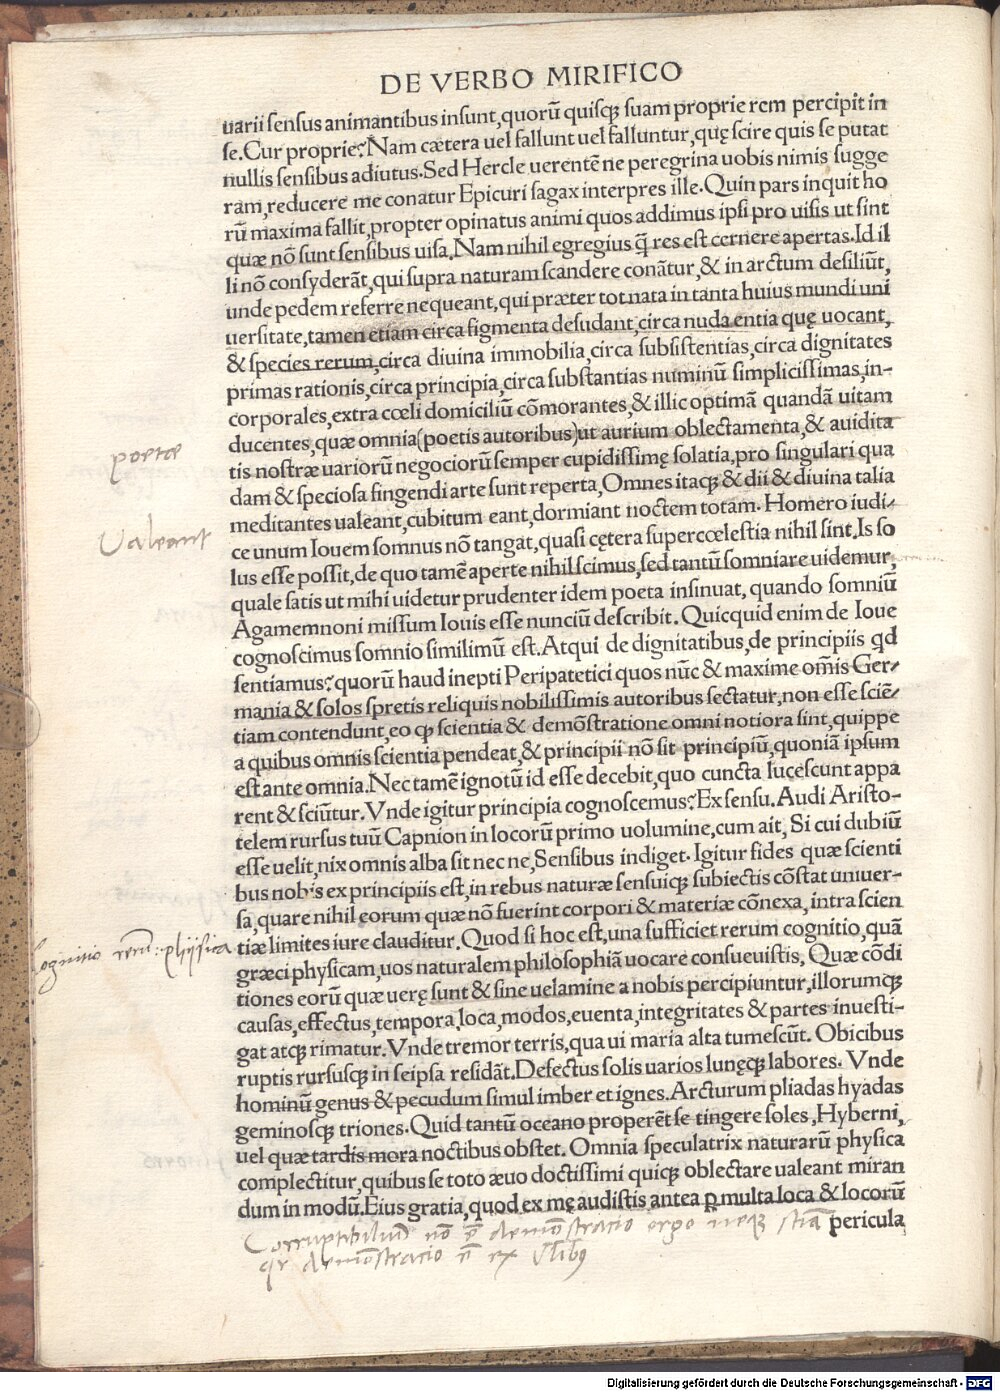 DE VERBO MIRIFICO
uarii sensus animantibus insunt,quorũ quisqꝫ suam proprie rem percipit in
se.Cur proprie? Nam cætera uel fallunt uel falluntur,quę scire quis se putat
nullis sensibus adiutus.Sed Hercle uerentẽ ne peregrina uobis nimis sugge
ram,reducere me conatur Epicuri sagax interpres ille.Quin pars inquit ho
rũ maxima fallit,propter opinatus animi quos addimus ipsi pro uisis ut sint
quæ nõ sunt sensibus uisa.Nam nihil egregius q̃ res est cernere apertas.Id il
li nõ consyderãt,qui supra naturam scandere conãtur,& in arctum desiliũt,
unde pedem referre nequeant,qui præter tot nata in tanta huius mundi uni
uersitate,tamen etiam circa figmenta desudant,circa nuda entia quę uocant,
& species rerum,circa diuina immobilia,circa subsistentias,circa dignitates
primas rationis,circa principia,circa substantias numinũ simplicissimas,in-
corporales,extra cœli domiciliũ cõmorantes,& illic optimã quandã uitam
ducentes,quæ omnia(poetis autoribus)ut aurium oblectamenta,& auidita
poetæ
tis nostræ uariorũ negociorũ semper cupidissimę solatia,pro singulari qua
dam & speciosa fingendi arte sunt reperta,Omnes itaqꝫ & dii & diuina talia
meditantes ualeant,cubitum eant,dormiant noctem totam. Homero iudi-
Valeant
ce unum Iouem somnus nõ tangat,quasi cętera supercœlestia nihil sint.Is so
lus esse possit,de quo tamẽ aperte nihil scimus,sed tantũ somniare uidemur,
quale satis ut mihi uidetur prudenter idem poeta insinuat, quando somniũ
Agamemnoni missum Iouis esse nunciũ describit. Quicquid enim de Ioue
cognoscimus somnio similimũ est.Atqui de dignitatibus,de principiis qd
sentiamus? quorũ haud inepti Peripatetici quos nũc & maxime om̃is Ger-
mania & solos spretis reliquis nobilissimis autoribus sectatur,non esse sciẽ-
tiam contendunt,eo qꝫ scientia & demõstratione omni notiora sint,quippe
a quibus omnis scientia pendeat,& principii nõ sit principiũ,quoniã ipsum
est ante omnia.Nec tamẽ ignotũ id esse decebit,quo cuncta lucescunt appa
rent & sciũtur.Vnde igitur principia cognoscemus? Ex sensu.Audi Aristo-
telem rursus tuũ Capnion in locorũ primo uolumine,cum ait, Si cui dubiũ
esse uelit,nix omnis alba sit nec ne,Sensibus indiget.Igitur fides quæ scienti
bus nobis ex principiis est,in rebus naturæ sensuiqꝫ subiectis cõstat uniuer-
sa,quare nihil eorum quæ nõ fuerint corpori & materiæ cõnexa, intra scien
Cognitio rerũ: phijsica
tiæ limites iure clauditur.Quod si hoc est,una sufficiet rerum cognitio,quã
græci physicam,uos naturalem philosophiã uocare consueuistis, Quæ cõdi
tiones eorũ quæ uerę sunt & sine uelamine a nobis percipiuntur,illorumqꝫ
causas,effectus,tempora,loca,modos,euenta,integritates & partes inuesti-
gat atqꝫ rimatur.Vnde tremor terris,qua ui maria alta tumescũt. Obicibus
ruptis rursusqꝫ in seipsa residãt.Defectus solis uarios lunęqꝫ labores. Vnde
hominũ genus & pecudum simul imber et ignes.Arcturum pliadas hyadas
geminosqꝫ triones.Quid tantũ oceano properẽt se tingere soles,Hyberni,
uel quæ tardis mora noctibus obstet. Omnia speculatrix naturarũ physica
complectitur,quibus se toto æuo doctissimi quiqꝫ oblectare ualeant miran
dum in modũ.Eius gratia,quod ex mę audistis antea ꝑ multa loca & locorũ
pericula
Corruptibiliũ nõ ẽ demõstracio ergo neqꝫ sciã
qr demõstracio ẽ ex